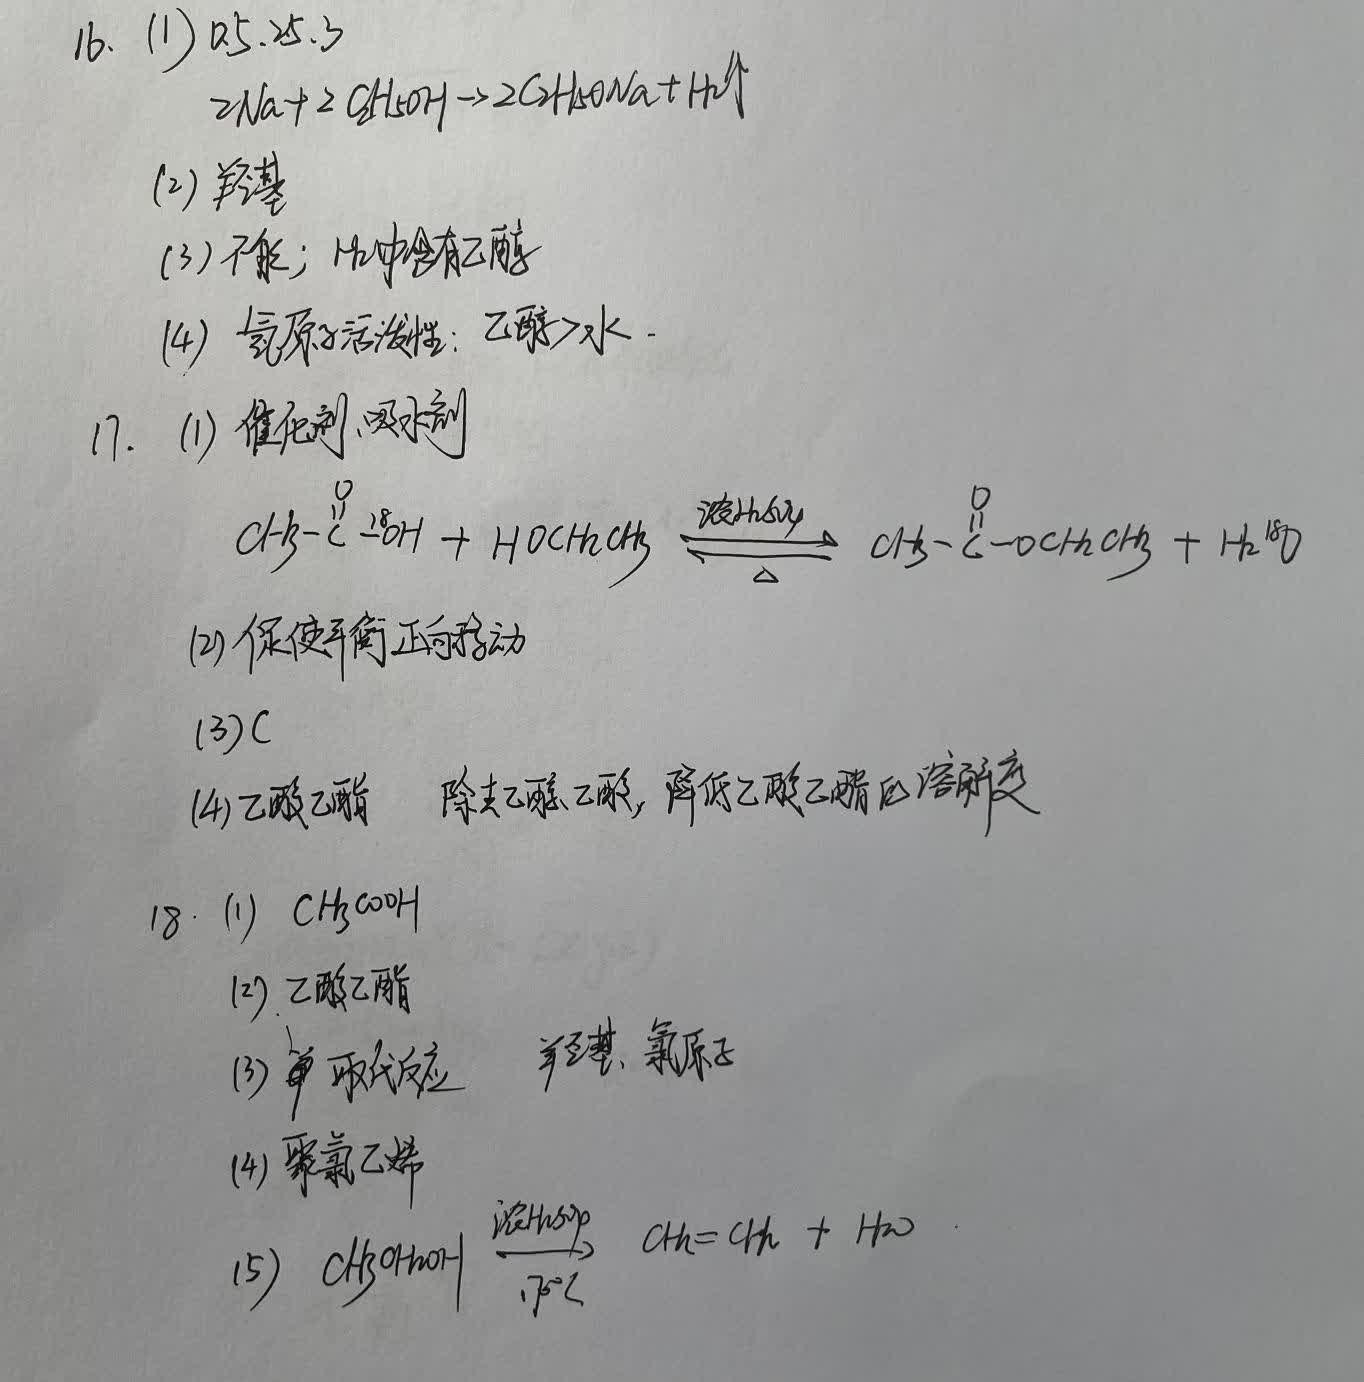 16. (1) 0.5. 25. 3
2Na+2C2H5OH→2C2H5ONa+H2↑
(2) 羟基
(3) 不能；H2中含有乙醇
(4) 氢原子活泼性：乙醇>水.
17. (1) 催化剂、吸水剂
CH3-C(=O)-18OH + HOCH2CH3 ⇌(浓H2SO4, △) CH3-C(=O)-OCH2CH3 + H2 18O
(2) 促使平衡正向移动
(3) C
(4) 乙酸乙酯 除去乙醇、乙酸，降低乙酸乙酯的溶解度
18. (1) CH3COOH
(2) 乙酸乙酯
(3) 取代反应 羟基、氯原子
(4) 聚氯乙烯
(5) CH3CH2OH →(浓H2SO4, 170℃) CH2=CH2 + H2O